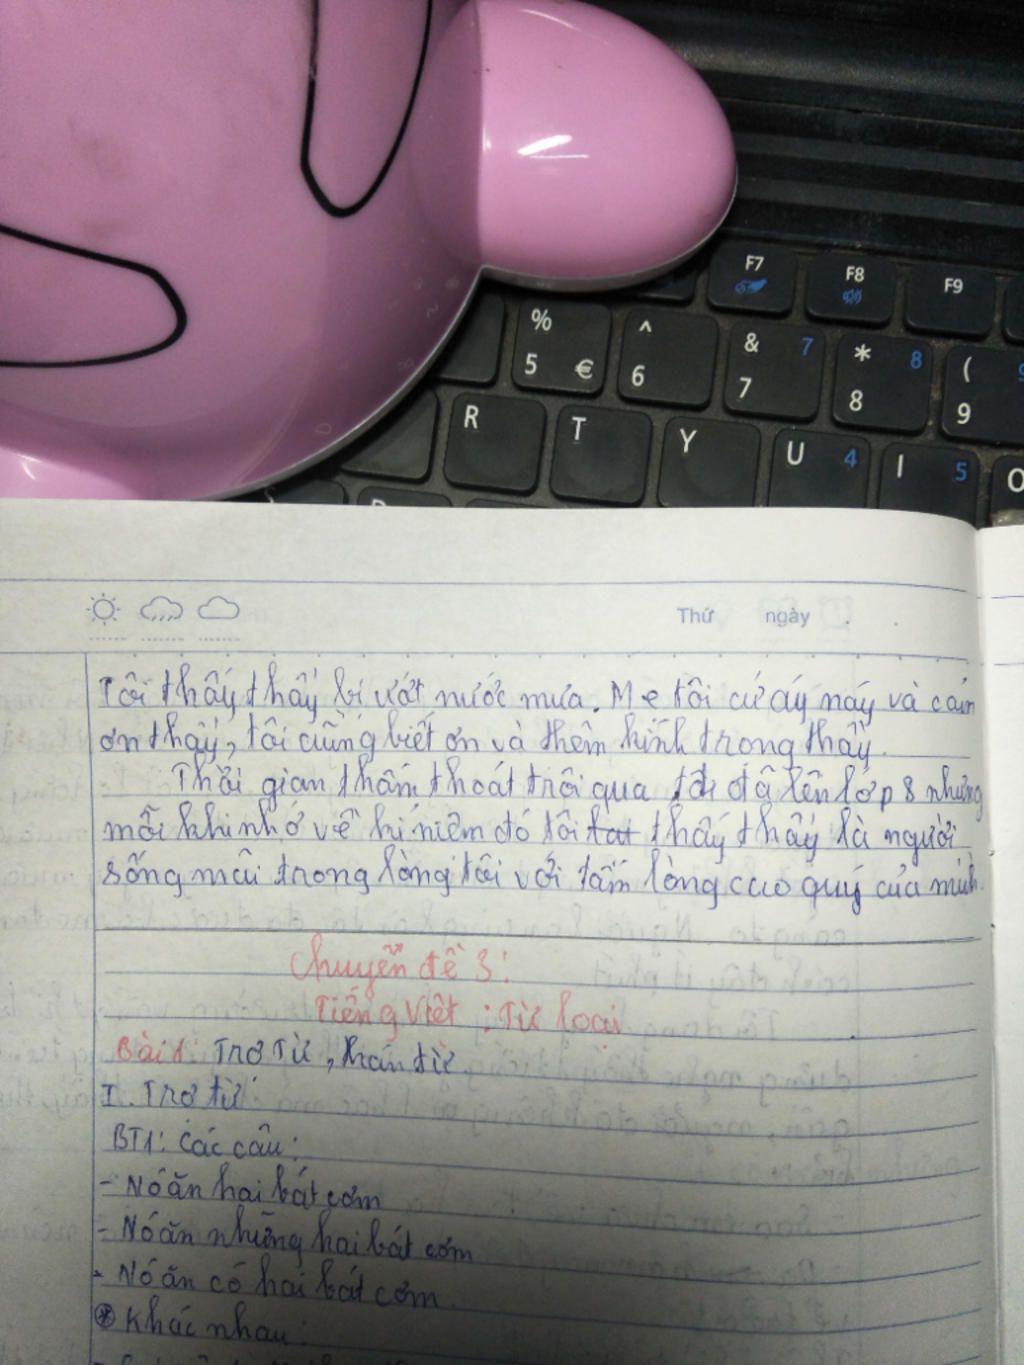 F7
F8
F9
%
5
€
^
6
&
7
7
*
8
8
(
9
R
T
Y
U
4
I
5
O
Thứ ngày
Tôi thấy thầy bị ướt nước mưa. Mẹ tôi cứ áy náy và cảm
ơn thầy, tôi cũng biết ơn và thêm kính trọng thầy.
Thời gian thấm thoát trôi qua tôi đã lên lớp 8 nhưng
mỗi khi nhớ về kỉ niệm đó tôi thấy thầy là người
sống mãi trong lòng tôi với tấm lòng cao quý của mình.
Chuyên đề 3:
Tiếng Việt : Từ loại
Bài 1: Trợ Từ, thán từ
I. Trợ từ
BT1: Các câu:
- Nó ăn hai bát cơm
- Nó ăn những hai bát cơm
- Nó ăn có hai bát cơm.
* Khác nhau: